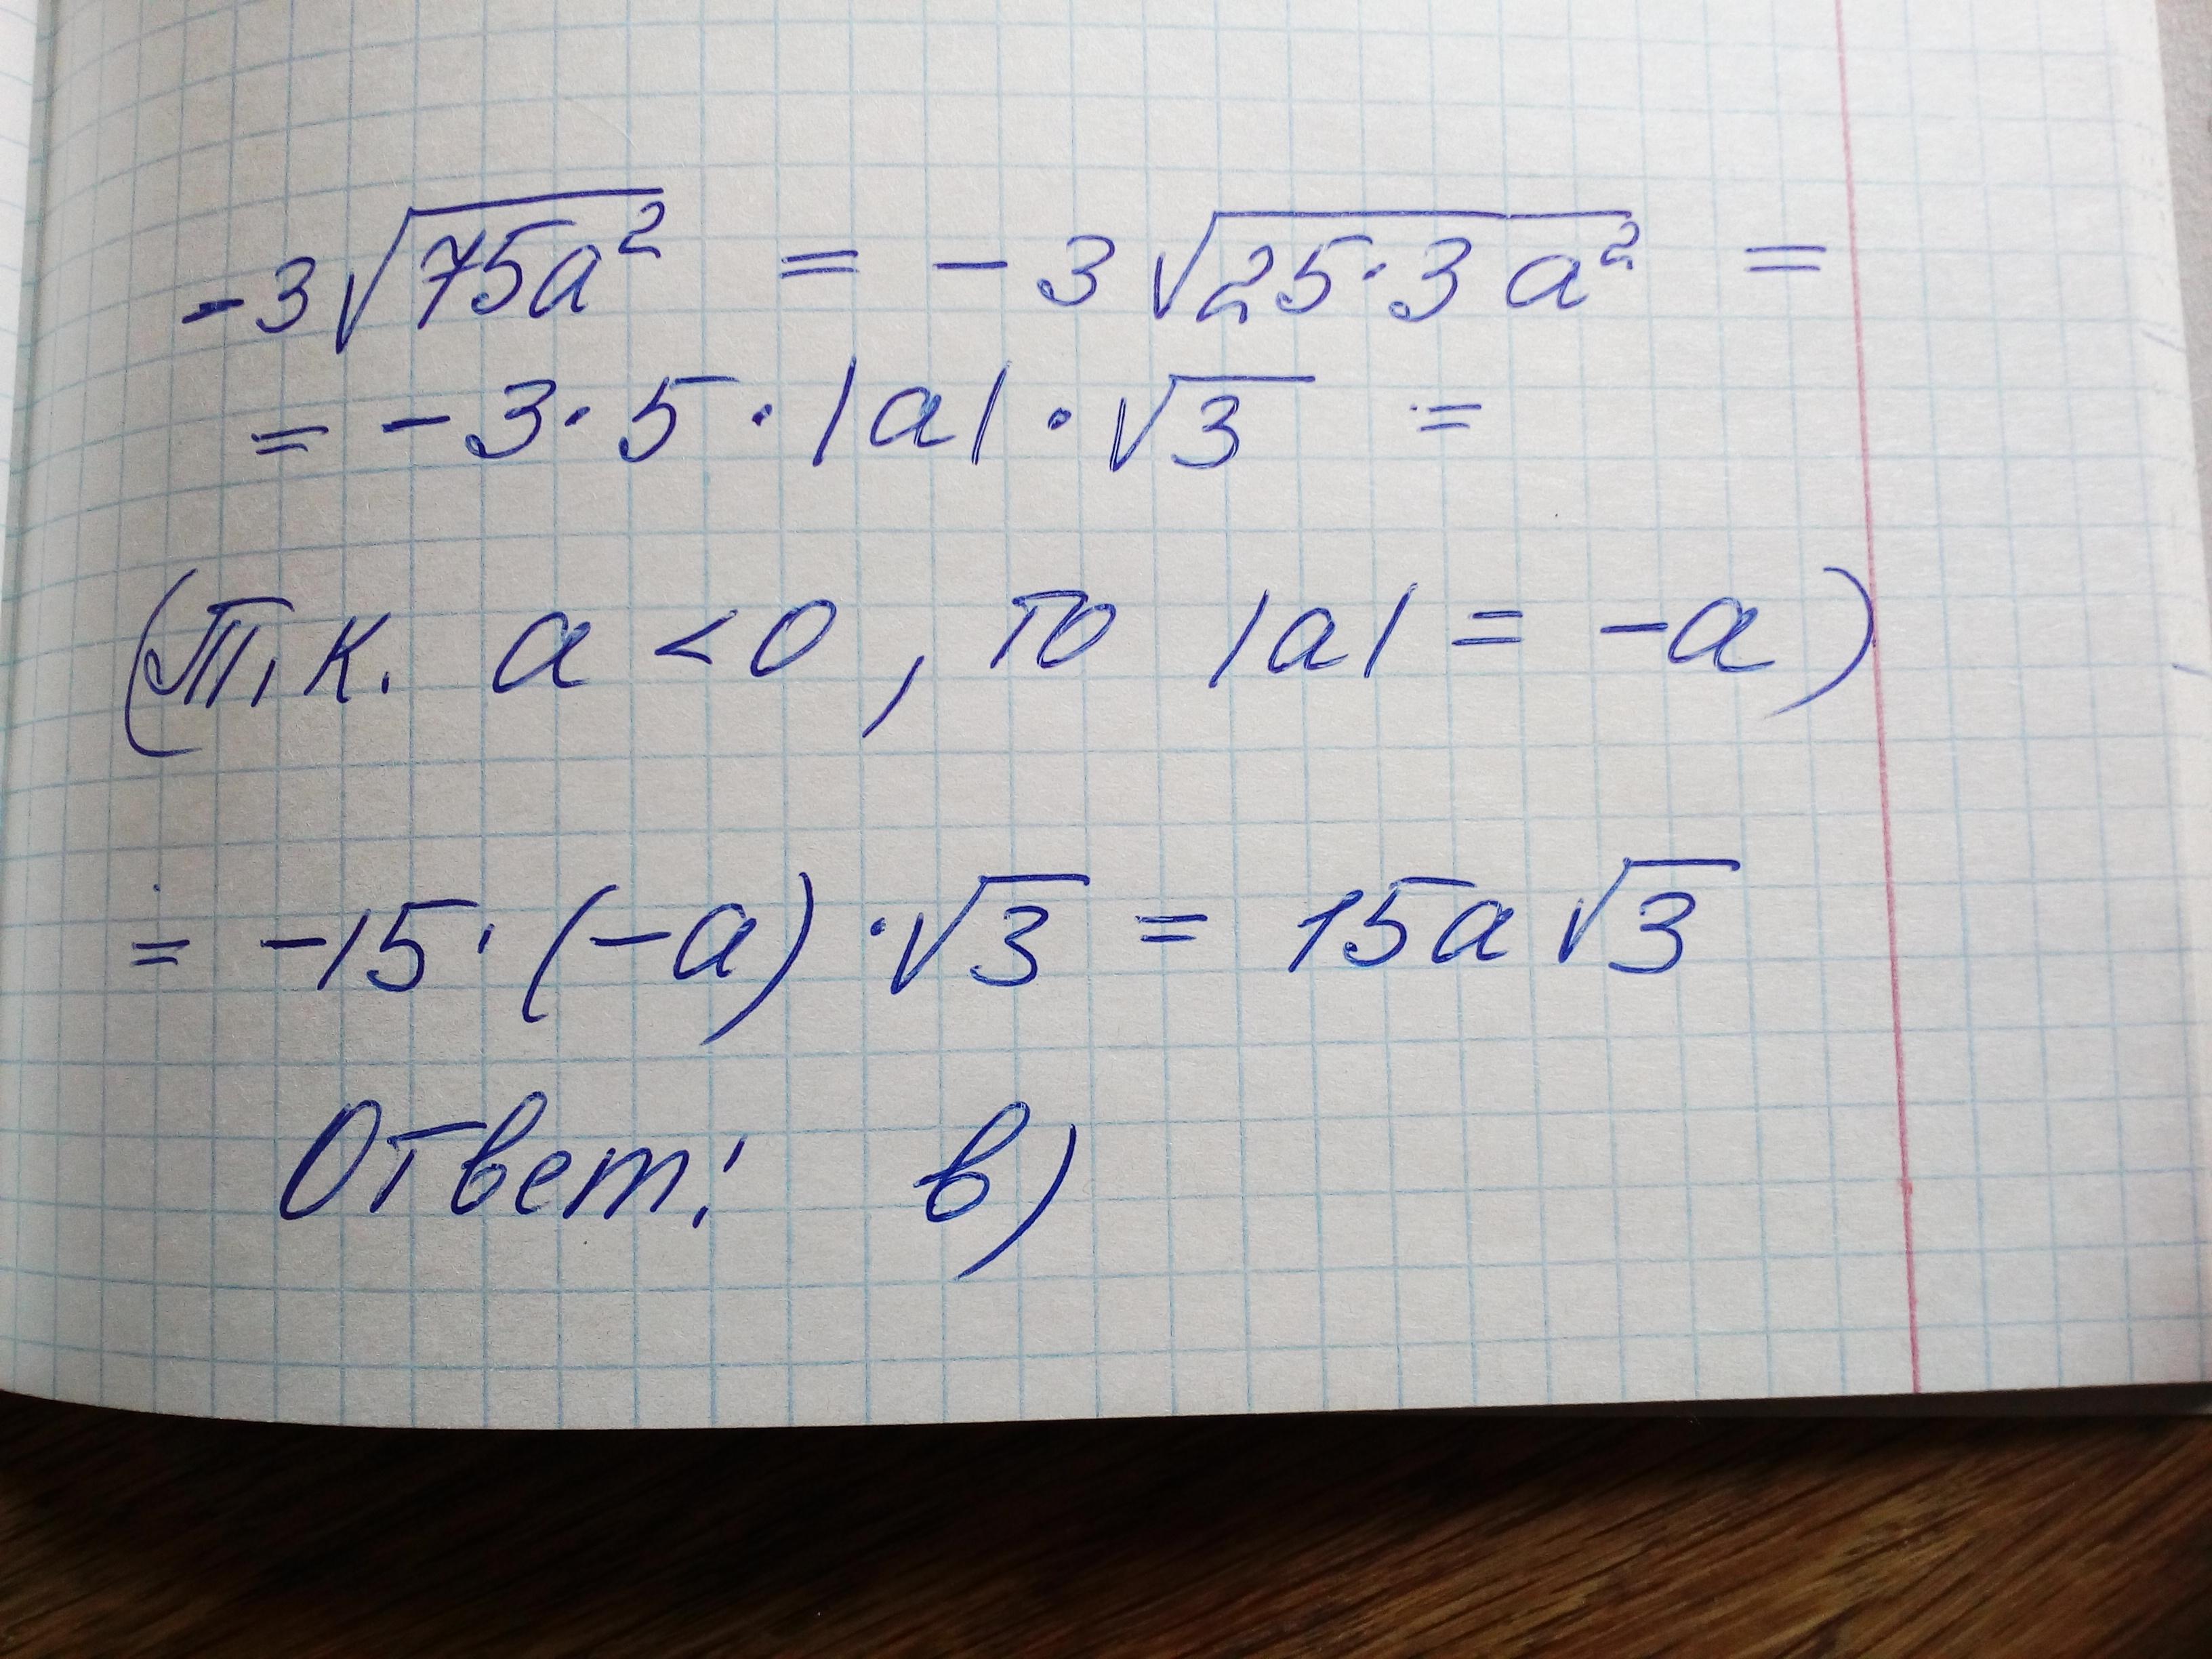 -3√75a² = -3√25·3a² =
= -3·5·|a|·√3 =
(Т.к. a<0, то |a| = -a)
= -15·(-a)·√3 = 15a√3
Ответ: в)